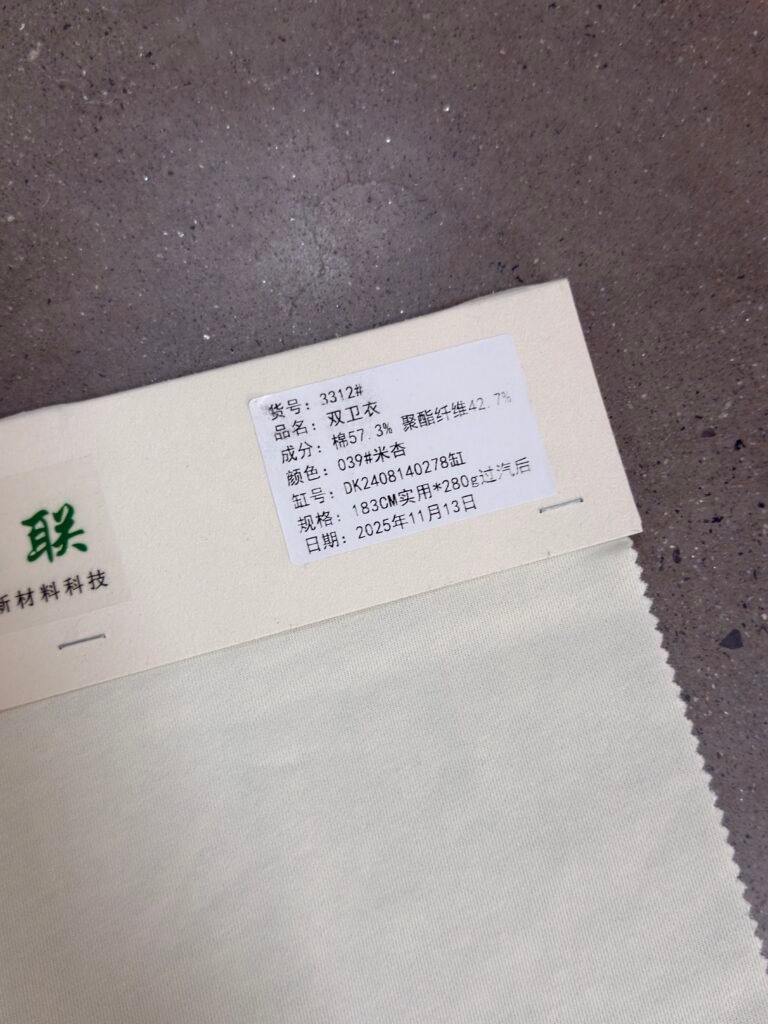 货号: 3312#
品名: 双卫衣
成分: 棉57.3% 聚酯纤维42.7%
颜色: 039#米杏
缸号: DK2408140278缸
规格: 183CM实用*280g过汽后
日期: 2025年11月13日
联
新材料科技